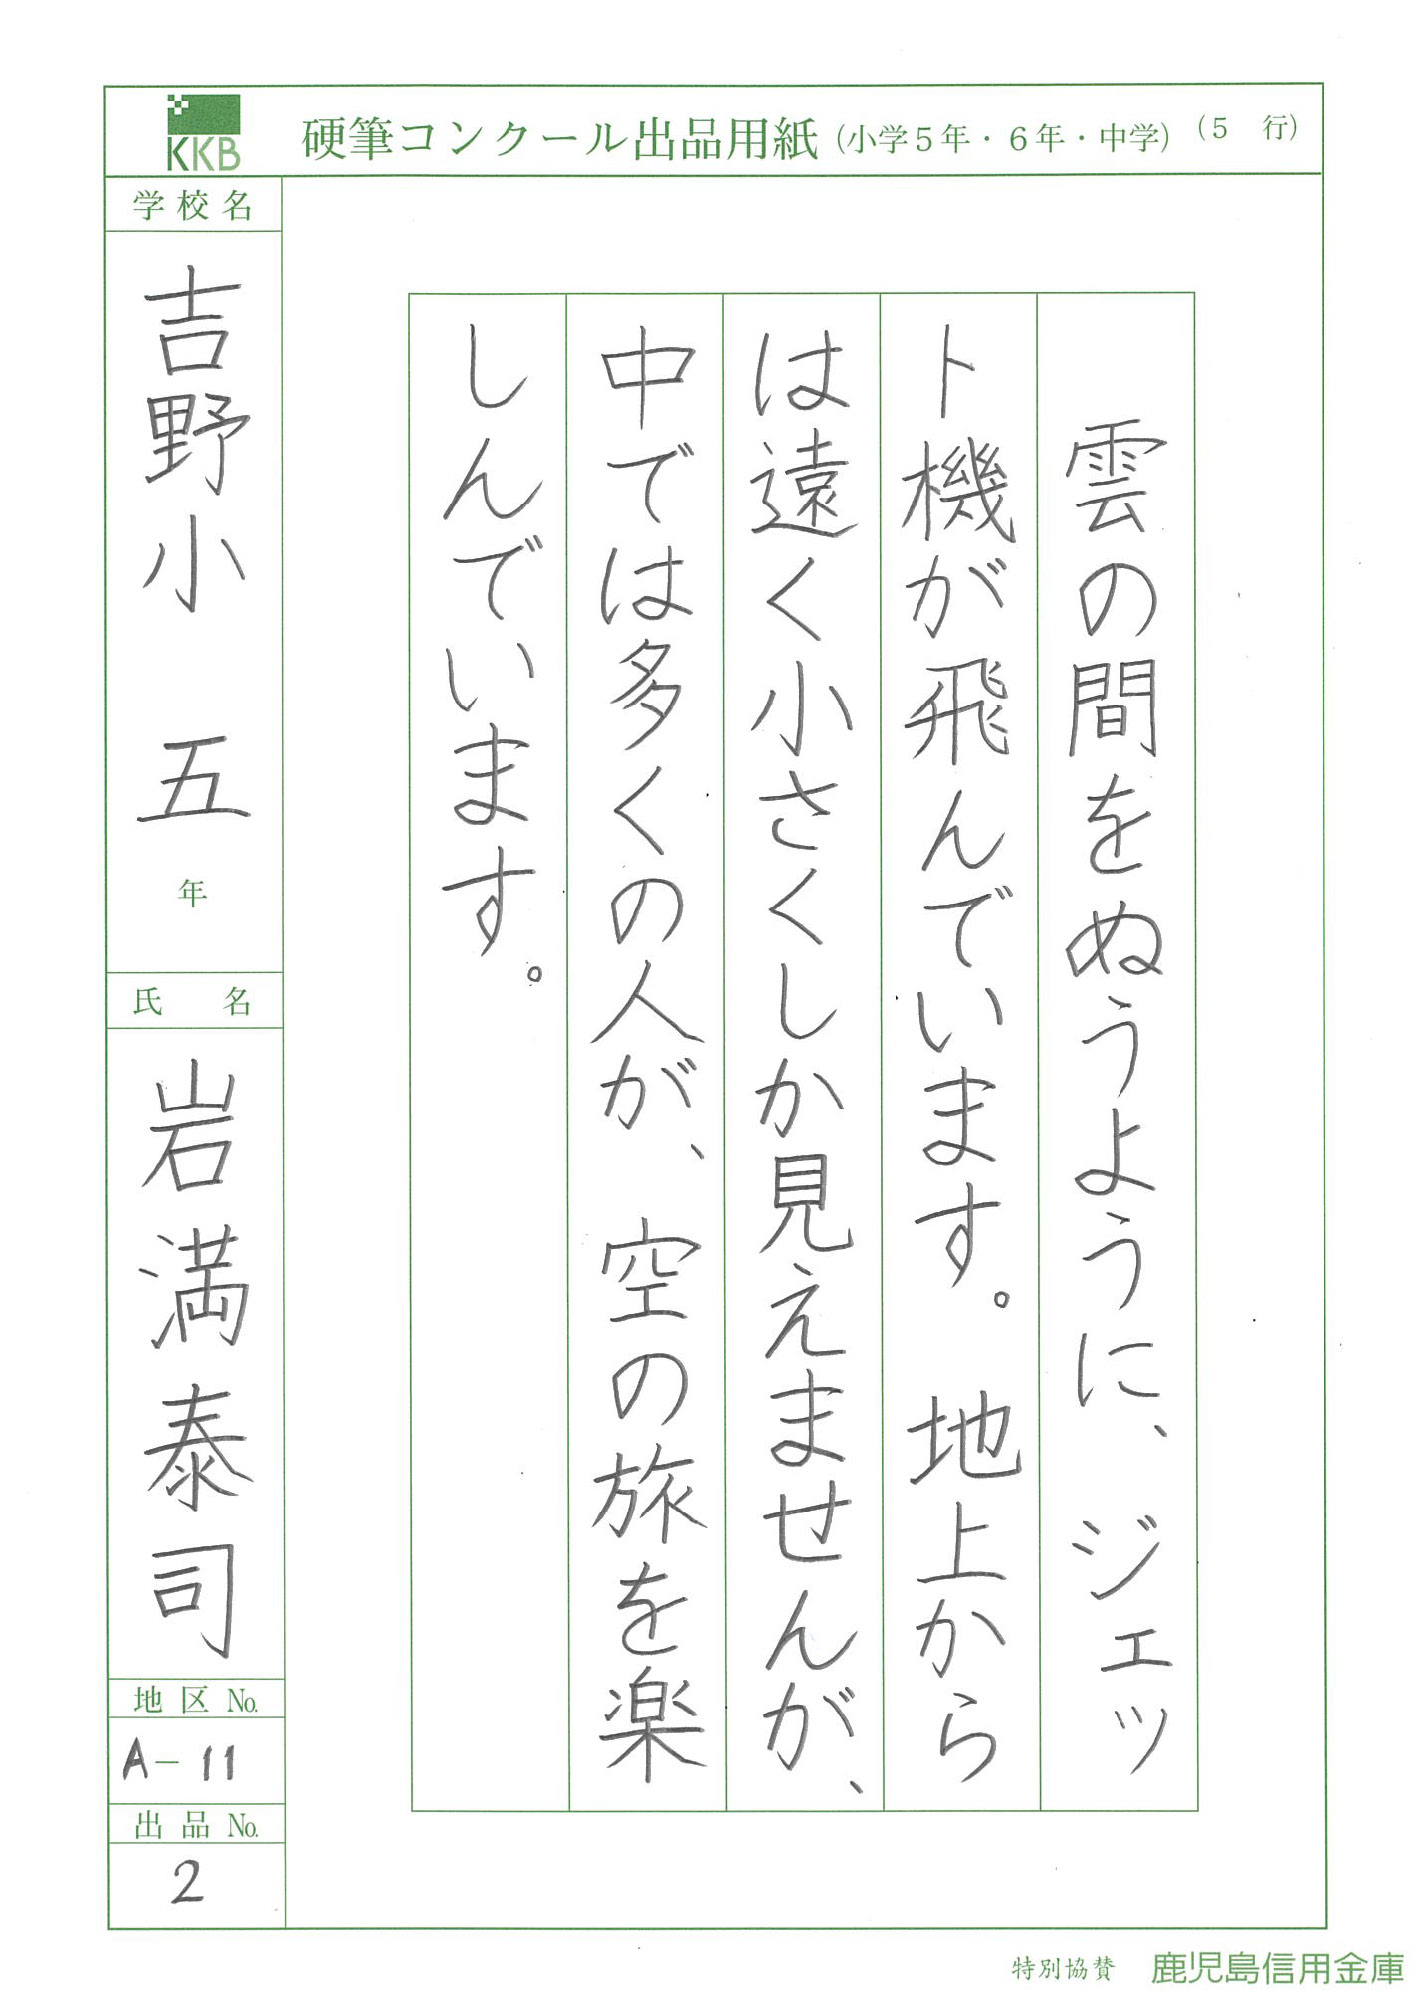 KKB
硬筆コンクール出品用紙（小学５年・６年・中学）（５　行）
雲の間をぬうように、ジェッ
ト機が飛んでいます。地上から
は遠く小さくしか見えませんが、
中では多くの人が、空の旅を楽
しんでいます。
学校名
吉野小　五年
氏　名
岩満泰司
地区No.
A－11
出品No.
2
特別協賛　鹿児島信用金庫